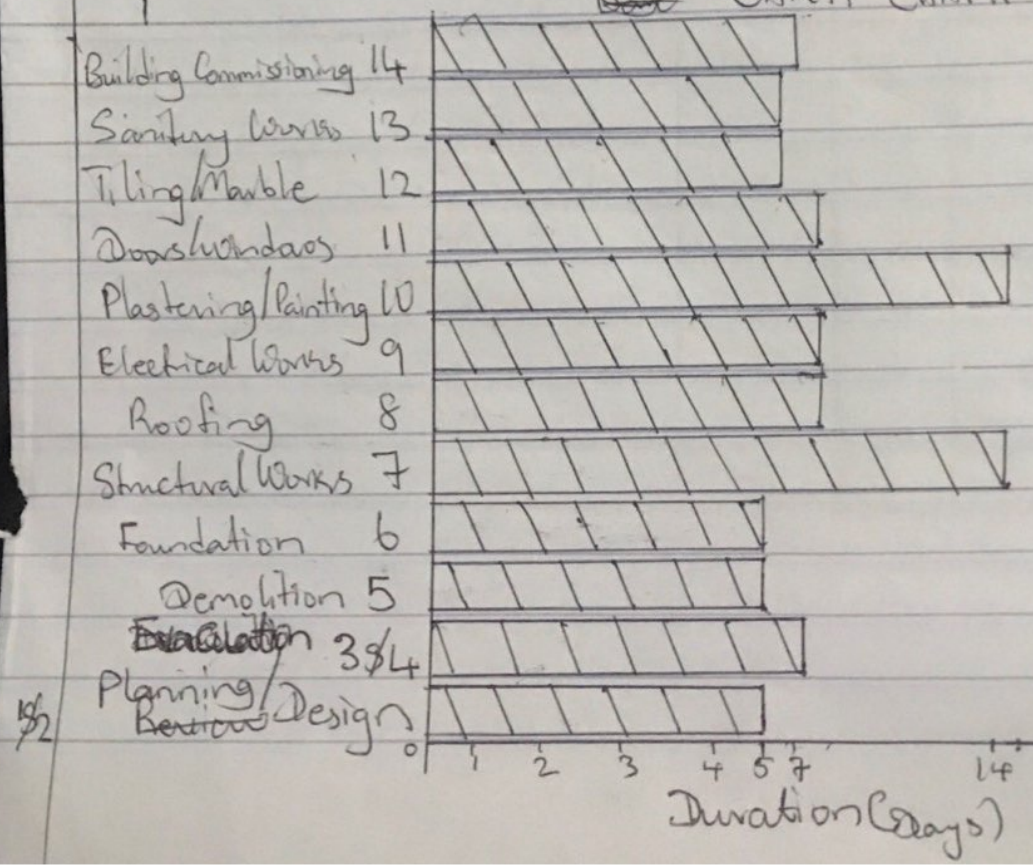 Building Commissioning 14
Sanitary Works 13
Tiling/Marble 12
Doors/Windows 11
Plastering/Painting 10
Electrical Works 9
Roofing 8
Structural Works 7
Foundation 6
Demolition 5
3&4
Planning/
1&2 Design
0 1 2 3 4 5 7 14
Duration (Days)